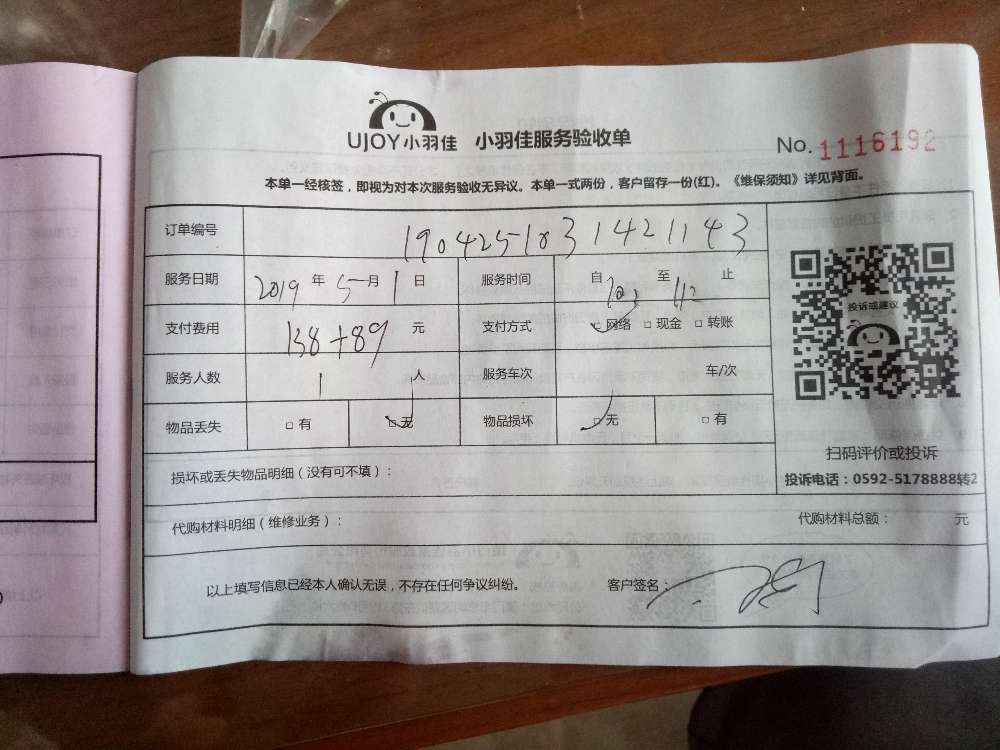 UJOY小羽佳 小羽佳服务验收单 No. 1116192
本单一经核签，即视为对本次服务验收无异议。本单一式两份，客户留存一份(红)。《维保须知》详见背面。
订单编号 1904251031421143
服务日期 2019 年 5 月 1 日 服务时间 自 至 止
支付费用 138+89 元 支付方式 □ 网络 □ 现金 □ 转账
投诉或建议
服务人数 1 人 服务车次 车/次
物品丢失 □ 有 □ 无 物品损坏 □ 无 □ 有
扫码评价或投诉
损坏或丢失物品明细（没有可不填）：
投诉电话：0592-5178888转2
代购材料明细（维修业务）： 代购材料总额： 元
以上填写信息已经本人确认无误，不存在任何争议纠纷。 客户签名：